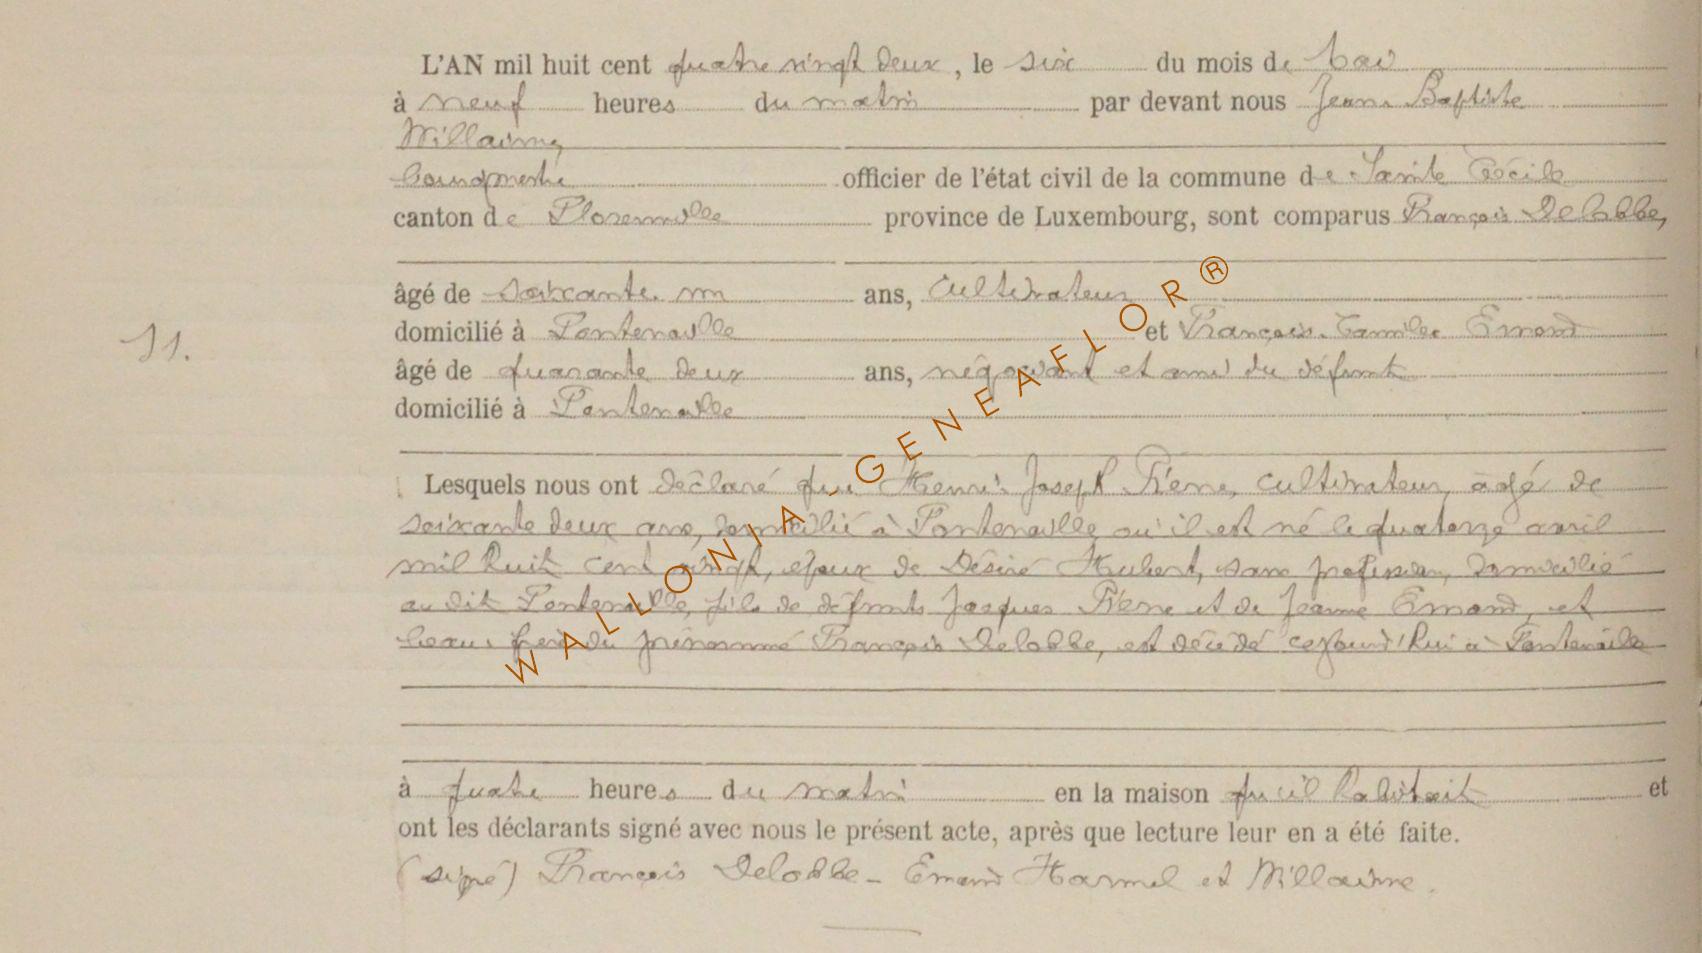 L'AN mil huit cent quatre vingt deux, le six du mois de Mai
à neuf heures du matin par devant nous Jean Baptiste
Willaime,
bourgmestre officier de l'état civil de la commune de Sainte Cécile
canton de Florenville province de Luxembourg, sont comparus François Delobbe,
âgé de soixante un ans, cultivateur
domicilié à Fontenoille et François Camille Emond
11.
âgé de quarante deux ans, négociant et ami du défunt
domicilié à Fontenoille
Lesquels nous ont déclaré que Henri Joseph cultivateur, âgé de
soixante deux ans, domicilié à Fontenoille où il est né le quatorze avril
mil huit cent vingt, époux de Désiré Hubert, sans profession, domiciliée
au dit Fontenoille, fils de défunts Jacques et de Jeanne Emond, et
beau frère du prénommé François Delobbe, est décédé cejourd'hui à Fontenoille
à quatre heures du matin en la maison qu'il habitait et
ont les déclarants signé avec nous le présent acte, après que lecture leur en a été faite.
(signé) François Delobbe - Emond Harmel et Willaime.
WALLONIA GENEAFLOR®